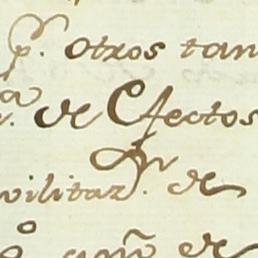 p.r otros tan
de Efectos
vilitaz.n de
o año de